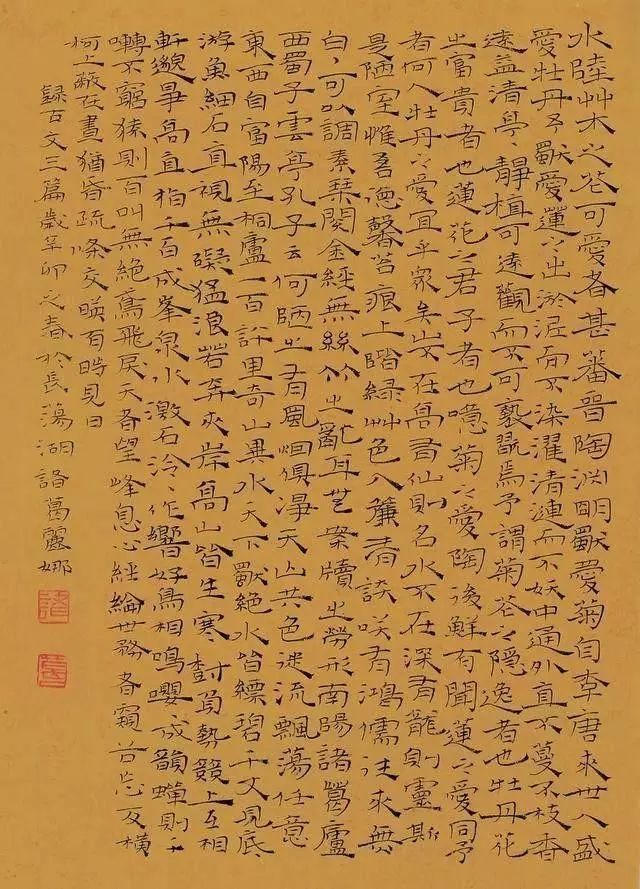 水陸艸木之花可愛者甚蕃晉陶淵明獨愛菊自李唐來世人盛
愛牡丹予獨愛蓮之出淤泥而不染濯清漣而不妖中通外直不蔓不枝香
遠益清亭〻靜植可遠觀而不可褻翫焉予謂菊花之隱逸者也牡丹花
之富貴者也蓮花之君子者也噫菊之愛陶後鮮有聞蓮之愛同予
者何人牡丹之愛宜乎眾矣山不在高有仙則名水不在深有龍則靈斯
是陋室惟吾德馨苔痕上階綠艸色入簾青談笑有鴻儒往來無
白丁可以調素琴閱金經無絲竹之亂耳無案牘之勞形南陽諸葛廬
西蜀子雲亭孔子云何陋之有風煙俱淨天山共色從流飄蕩任意
東西自富陽至桐廬一百許里奇山異水天下獨絕水皆縹碧千丈見底
游魚細石直視無礙猛浪若奔夾岸高山皆生寒樹負勢競上互相
軒邈爭高直指千百成峯泉水激石泠〻作響好鳥相鳴嚶〻成韻蟬則千
囀不窮猿則百叫無絕鳶飛戾天者望峰息心經綸世務者窺谷忘反橫
柯上蔽在晝猶昏疏條交映有時見日
錄古文三篇歲辛卯之春於長蕩湖諸葛麗娜